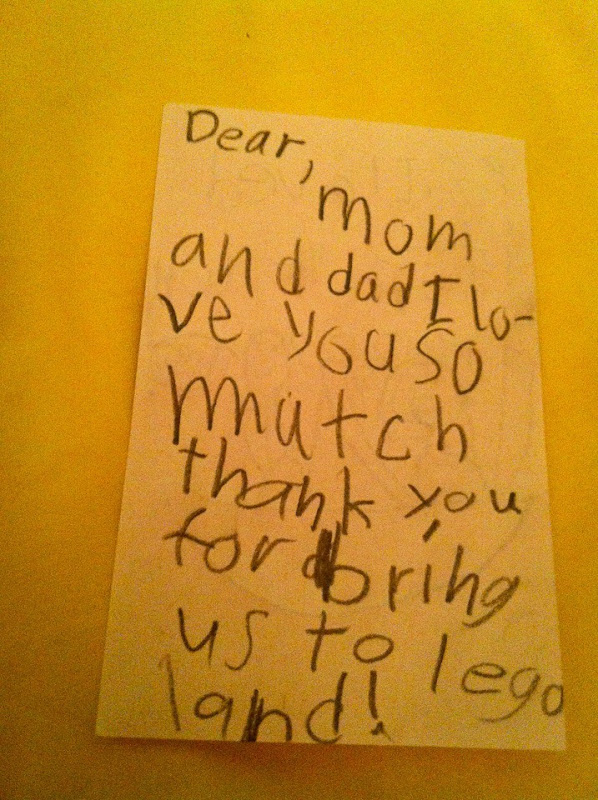 Dear,
mom
and dad I lo-
ve you so
mutch
thank you
for bring
us to lego
land!